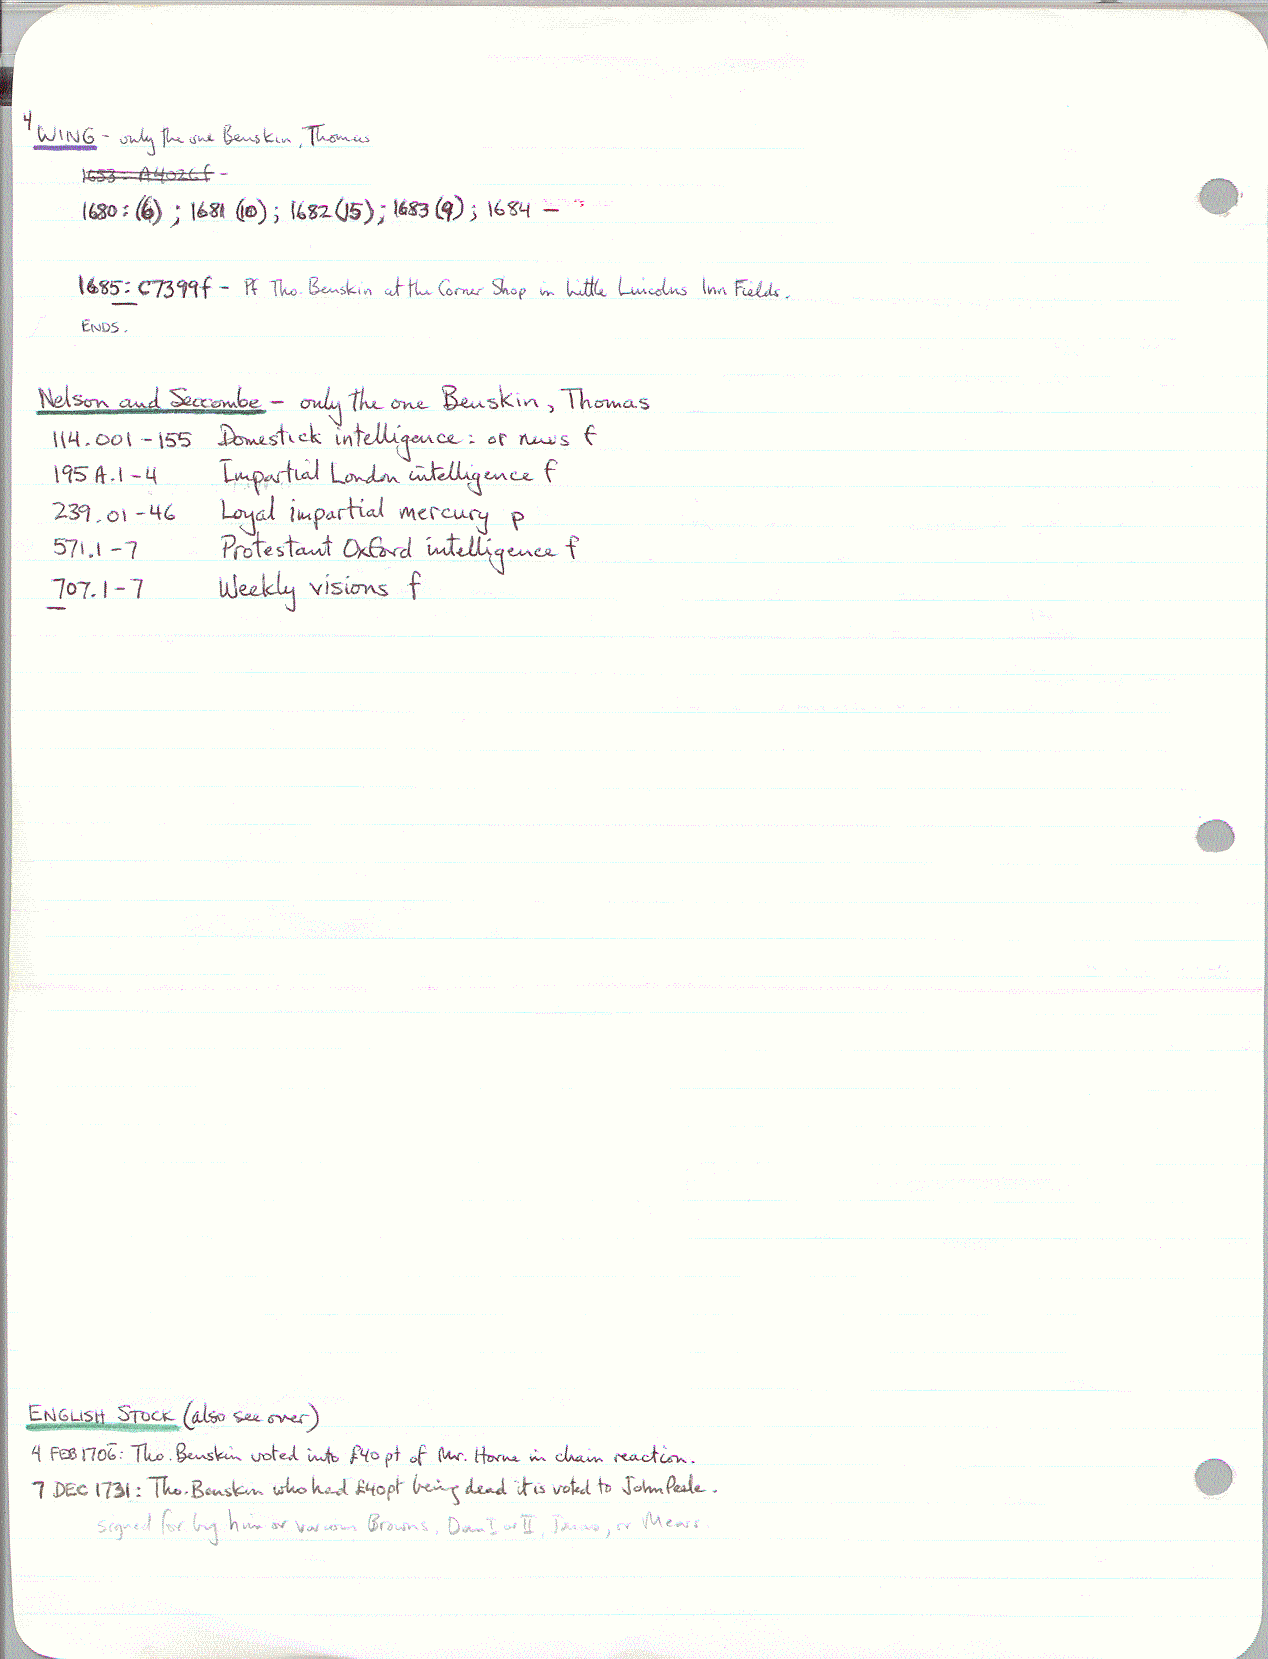 4 WING - only the one Benskin, Thomas
1653: A4026f -
1680: (6) ; 1681 (10) ; 1682 (15) ; 1683 (9) ; 1684 —
1685: C7399f - Pf Tho. Benskin at the Corner Shop in Little Lincolns Inn Fields.
ENDS.
Nelson and Seccombe - only the one Benskin, Thomas
114.001-155 Domestick intelligence: or news f
195A.1-4 Impartial London intelligence f
239.01-46 Loyal impartial mercury p
571.1-7 Protestant Oxford intelligence f
707.1-7 Weekly visions f
ENGLISH STOCK (also see over)
4 FEB 1706: Tho. Benskin voted into £40 pt of Mr. Horne in chain reaction.
7 DEC 1731: Tho. Benskin who had £40 pt being dead it is voted to John Peele.
signed for by him or various Browns, Dan I or II, or Mears.